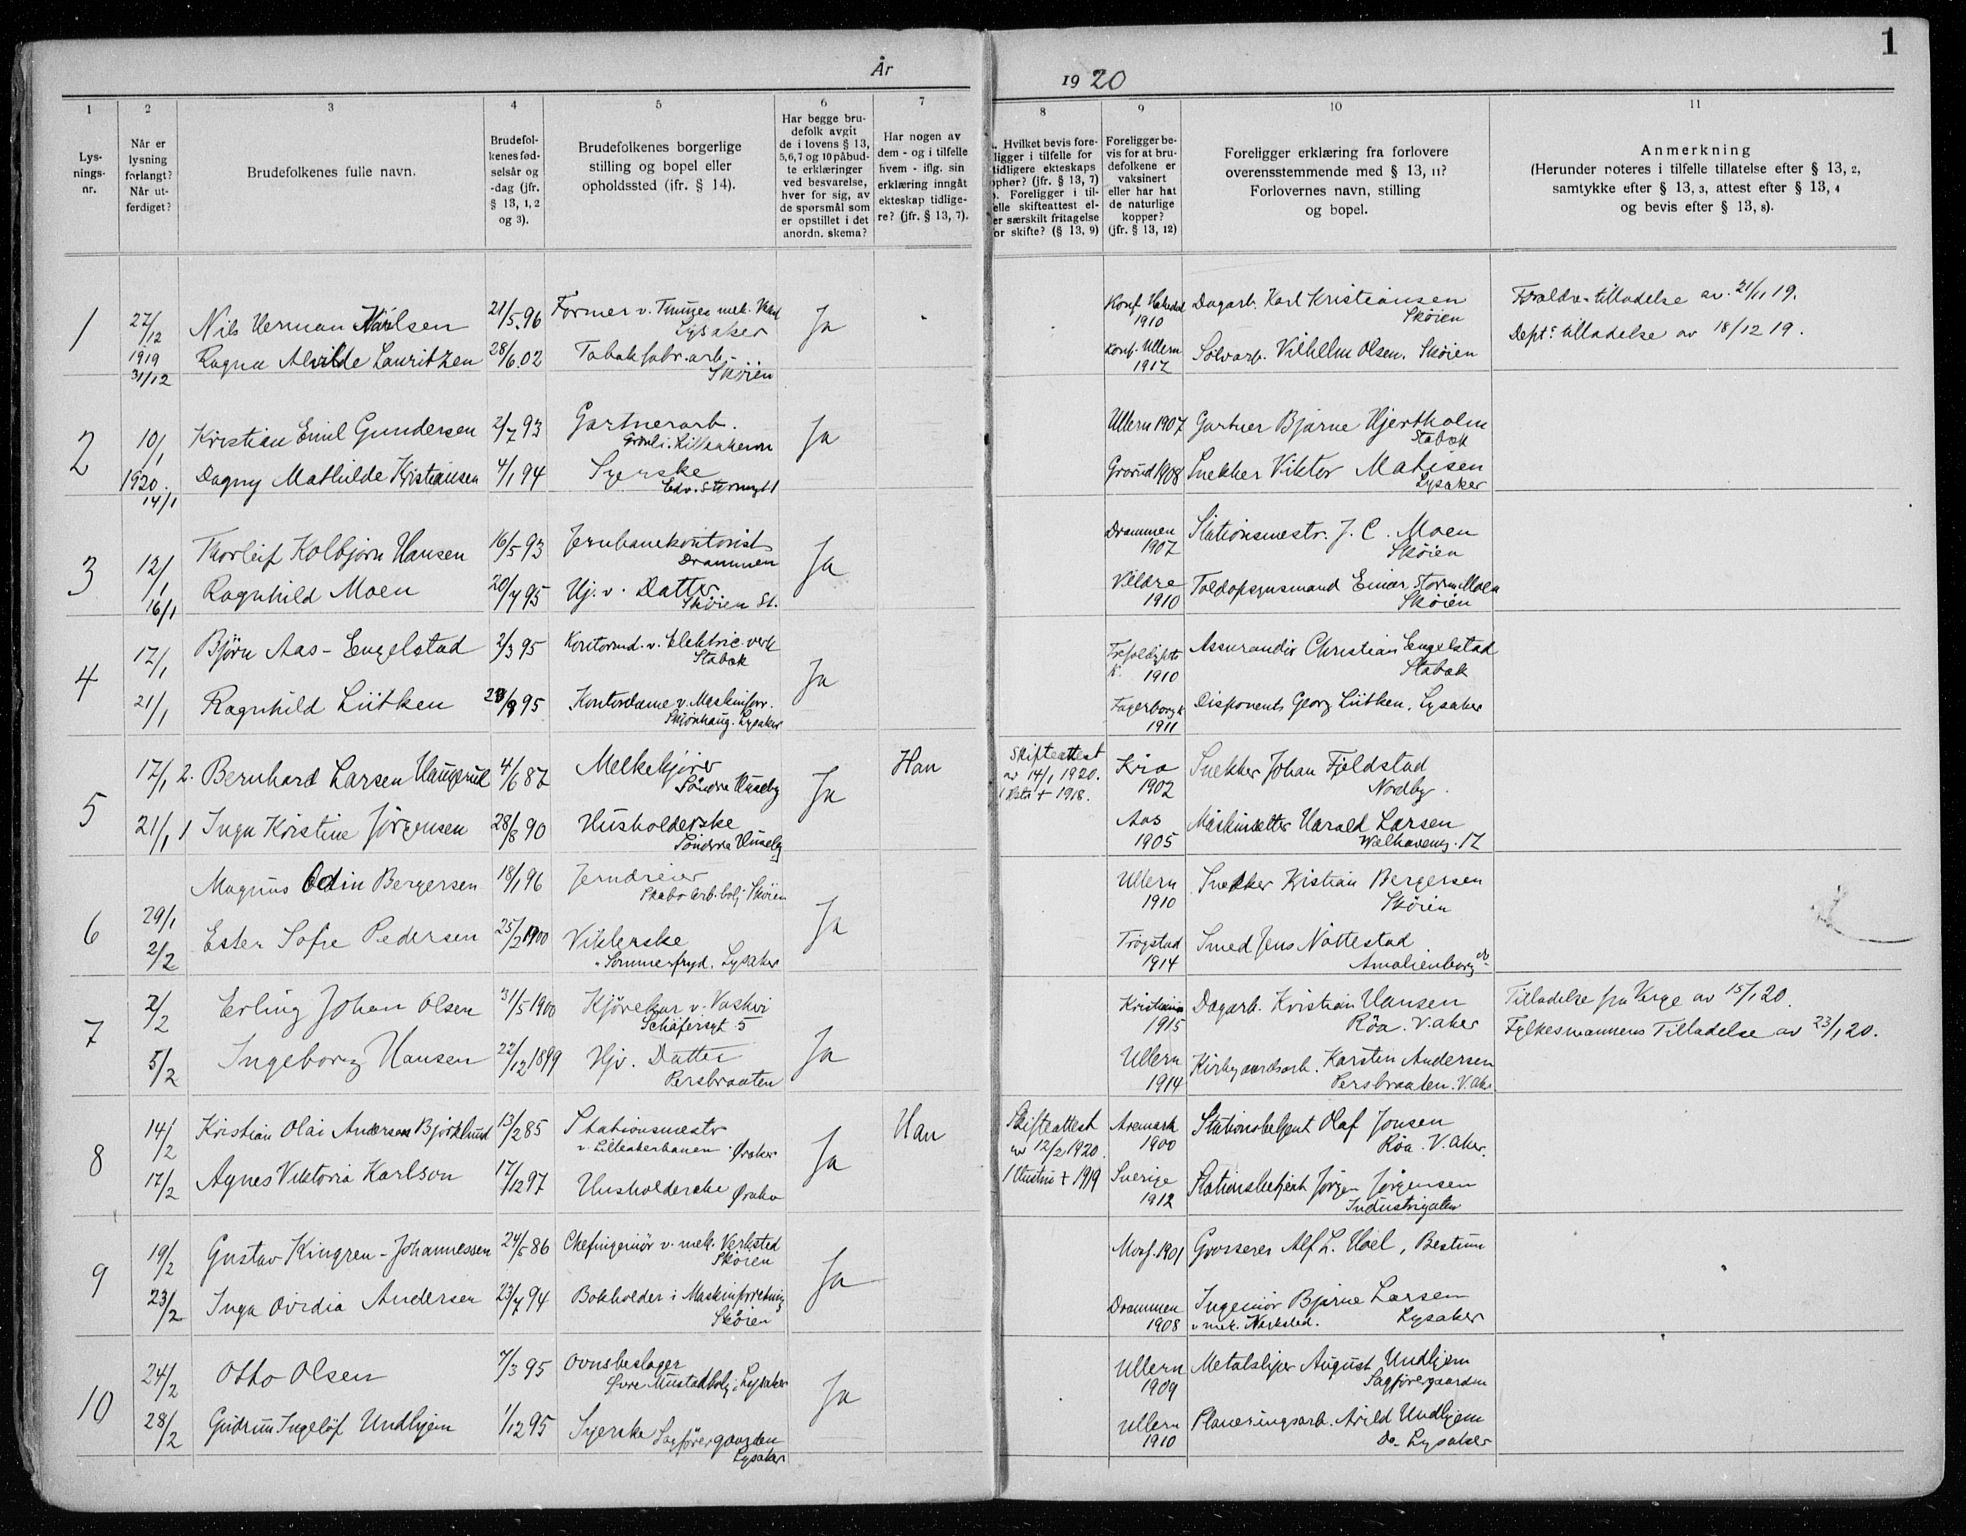 1
År
19 20
1
2
3
4
5
6
7
8
9
10
11
Lys-
nings-
nr.
Når er
lysning
forlangt?
Når ut-
ferdiget?
Brudefolkenes fulle navn.
Brudefol-
kenes fød-
selsår og
-dag (jfr.
§ 13, 1, 2
og 3).
Brudefolkenes borgerlige
stilling og bopel eller
opholdssted (ifr. § 14).
Har begge bru-
defolk avgit
de i lovens § 13,
5,6,7 og 10 påbud-
te erklæringer
ved besvarelse,
hver for sig, av
de spørsmål som
er opstillet i det
anordn. skema?
Har nogen av
dem - og i tilfelle
hvem - iflg. sin
erklæring inngått
ekteskap tidlige-
re? (jfr. § 13, 7).
. Hvilket bevis fore-
ligger i tilfelle for
tidligere ekteskaps
opher? (jfr. § 13, 7)
. Foreligger i til-
elle skifteattest el-
er særskilt fritagelse
or skifte? (§ 13, 9)
Foreligger be-
vis for at bru-
defolkene er
vaksinert
eller har hat
de naturlige
kopper?
(jfr. § 13, 12)
Foreligger erklæring fra forlovere
overensstemmende med § 13, 11?
Forlovernes navn, stilling
og bopel.
Anmerkning
(Herunder noteres i tilfelle tillatelse efter § 13, 2,
samtykke efter § 13, 3, attest efter § 13, 4
og bevis efter § 13, 8).
1 27/12 Nils Herman Karlsen 21/5 96 Former v. Thunes mek. Ja Konf. Dagarb. Karl Kristiansen Foraldre-tilladelse av 21/11 19.
Lysaker 1910 Skøien
1919 Ragna Alvilde Lauritzen 28/6 02 Tobakfabr. arb. Konf. Ullern Sølvarb. Vilhelm Olsen. Skøien Dept.s tilladelse av 18/12 19.
31/12 Skøien 1917
2 10/1 Kristian Emil Gundersen 2/7 93 Gartnerarb. Ja Ullern 1907 Gartner Bjarne Hjertholm
Stabæk
1920. Dagny Mathilde Kristiansen 4/1 94 Syerske Grorud 1908 Snekker Viktor Matisen
14/1 Edv. Stormsgt 1 Lysaker
3 12/1 Thorleif Kolbjørn Hansen 16/5 93 Jernbanekontorist Ja Drammen Stationsmestr. J. C. Moen
Drammen 1907 Skøien
16/1 Ragnhild Moen 20/7 95 Hj. v. Datter 1910 Toldopsynsmand Einar Storm Moen
Skøien St. Skøien
4 17/1 Bjørn Aas-Engelstad 2/3 95 Kontormd. v. Elektric. verk Ja Assurandør Christian Engelstad
Stabæk 1910 Stabæk
21/1 Ragnhild Lütken 95 Kontordame v. Maskinforr. Fagerborg k. Disponent Georg Lütken, Lysaker
Skjønhaug. Lysaker 1911
5 17/1 2. Bernhard Larsen Haugerud 4/6 87 Melkekjører Ja Han Skifteattest Kria Snekker Johan Fjeldstad
Søndre Huseby av 14/1 1920. 1902 Nordby.
+ 1918.
21/1 1 Inga Kristine Jørgensen 28/8 90 Husholderske Aas Maskinsetter Harald Larsen
Søndre Huseby 1905 Welhavensg. 17
6 Magnus Odin Bergersen 18/1 96 Jerndreier Ja Ullern Snekker Kristian Bergersen
29/1 Skabo Arb.bolj Skøien 1910 Skøien
2/2 Ester Sofie Pedersen 25/2 1900 Viklerske Trøgstad Smed Jens Nøttestad
Sommerfryd. Lysaker 1914 Amalienborg do
7 2/2 Erling Johan Olsen 31/5 1900 Kjørekar v. Vaskeri Ja Kristiania Dagarb. Kristian Hansen Tilladelse fra Verge av 15/1 20.
Schäfersgt 5 1915 Røa. V. aker Fylkesmannens Tilladelse av 23/1 20.
5/2 Ingeborg Hansen 22/12 1899 Hjv. Datter Ullern Kirkegaardsarb. Karsten Andersen
Persbraaten 1914 Persbraaten. V. ak.
8 14/2 Kristian Olai Andersen Bjørklund 13/2 85 Stationsmestr Ja Han Skifteattest Aremark Stationsbetjent Olaf Jonsen
v. Lilleakerbanen. Øraker av 12/2 1920. 1900 Røa. V. Aker.
17/2 Agnes Viktoria Karlson 17/12 97 Husholderske Øraker 1 Hustru + 1919 Sverige Stationsbetjent Jørgen Jørgensen
1912 Industrigaten
9 19/2 Gustav Kingren-Johannessen 24/5 86 Chefingeniør v. mek. Verksted Ja 1901 Grosserer Alf L. Hoel, Bestum
Skøien
23/2 Inga Ovidia Andersen 23/7 94 Bokholder i Maskinforretning Drammen Ingeniør Bjarne Larsen
Skøien 1908 v mek. Verksted. Lysaker
10 24/2 Otto Olsen 7/3 95 Ovnsbeslager Ja Ullern Metalsliper August Undhjem
Øvre Mustadbolj; Lysaker 1909 Sagførergaarden
28/2 Gudrun Ingeløf Undhjem 1/12 95 Syerske Sagførergaarden Ullern Planeringsarb. Arild Undhjem
Lysaker 1910 Do- Lysaker